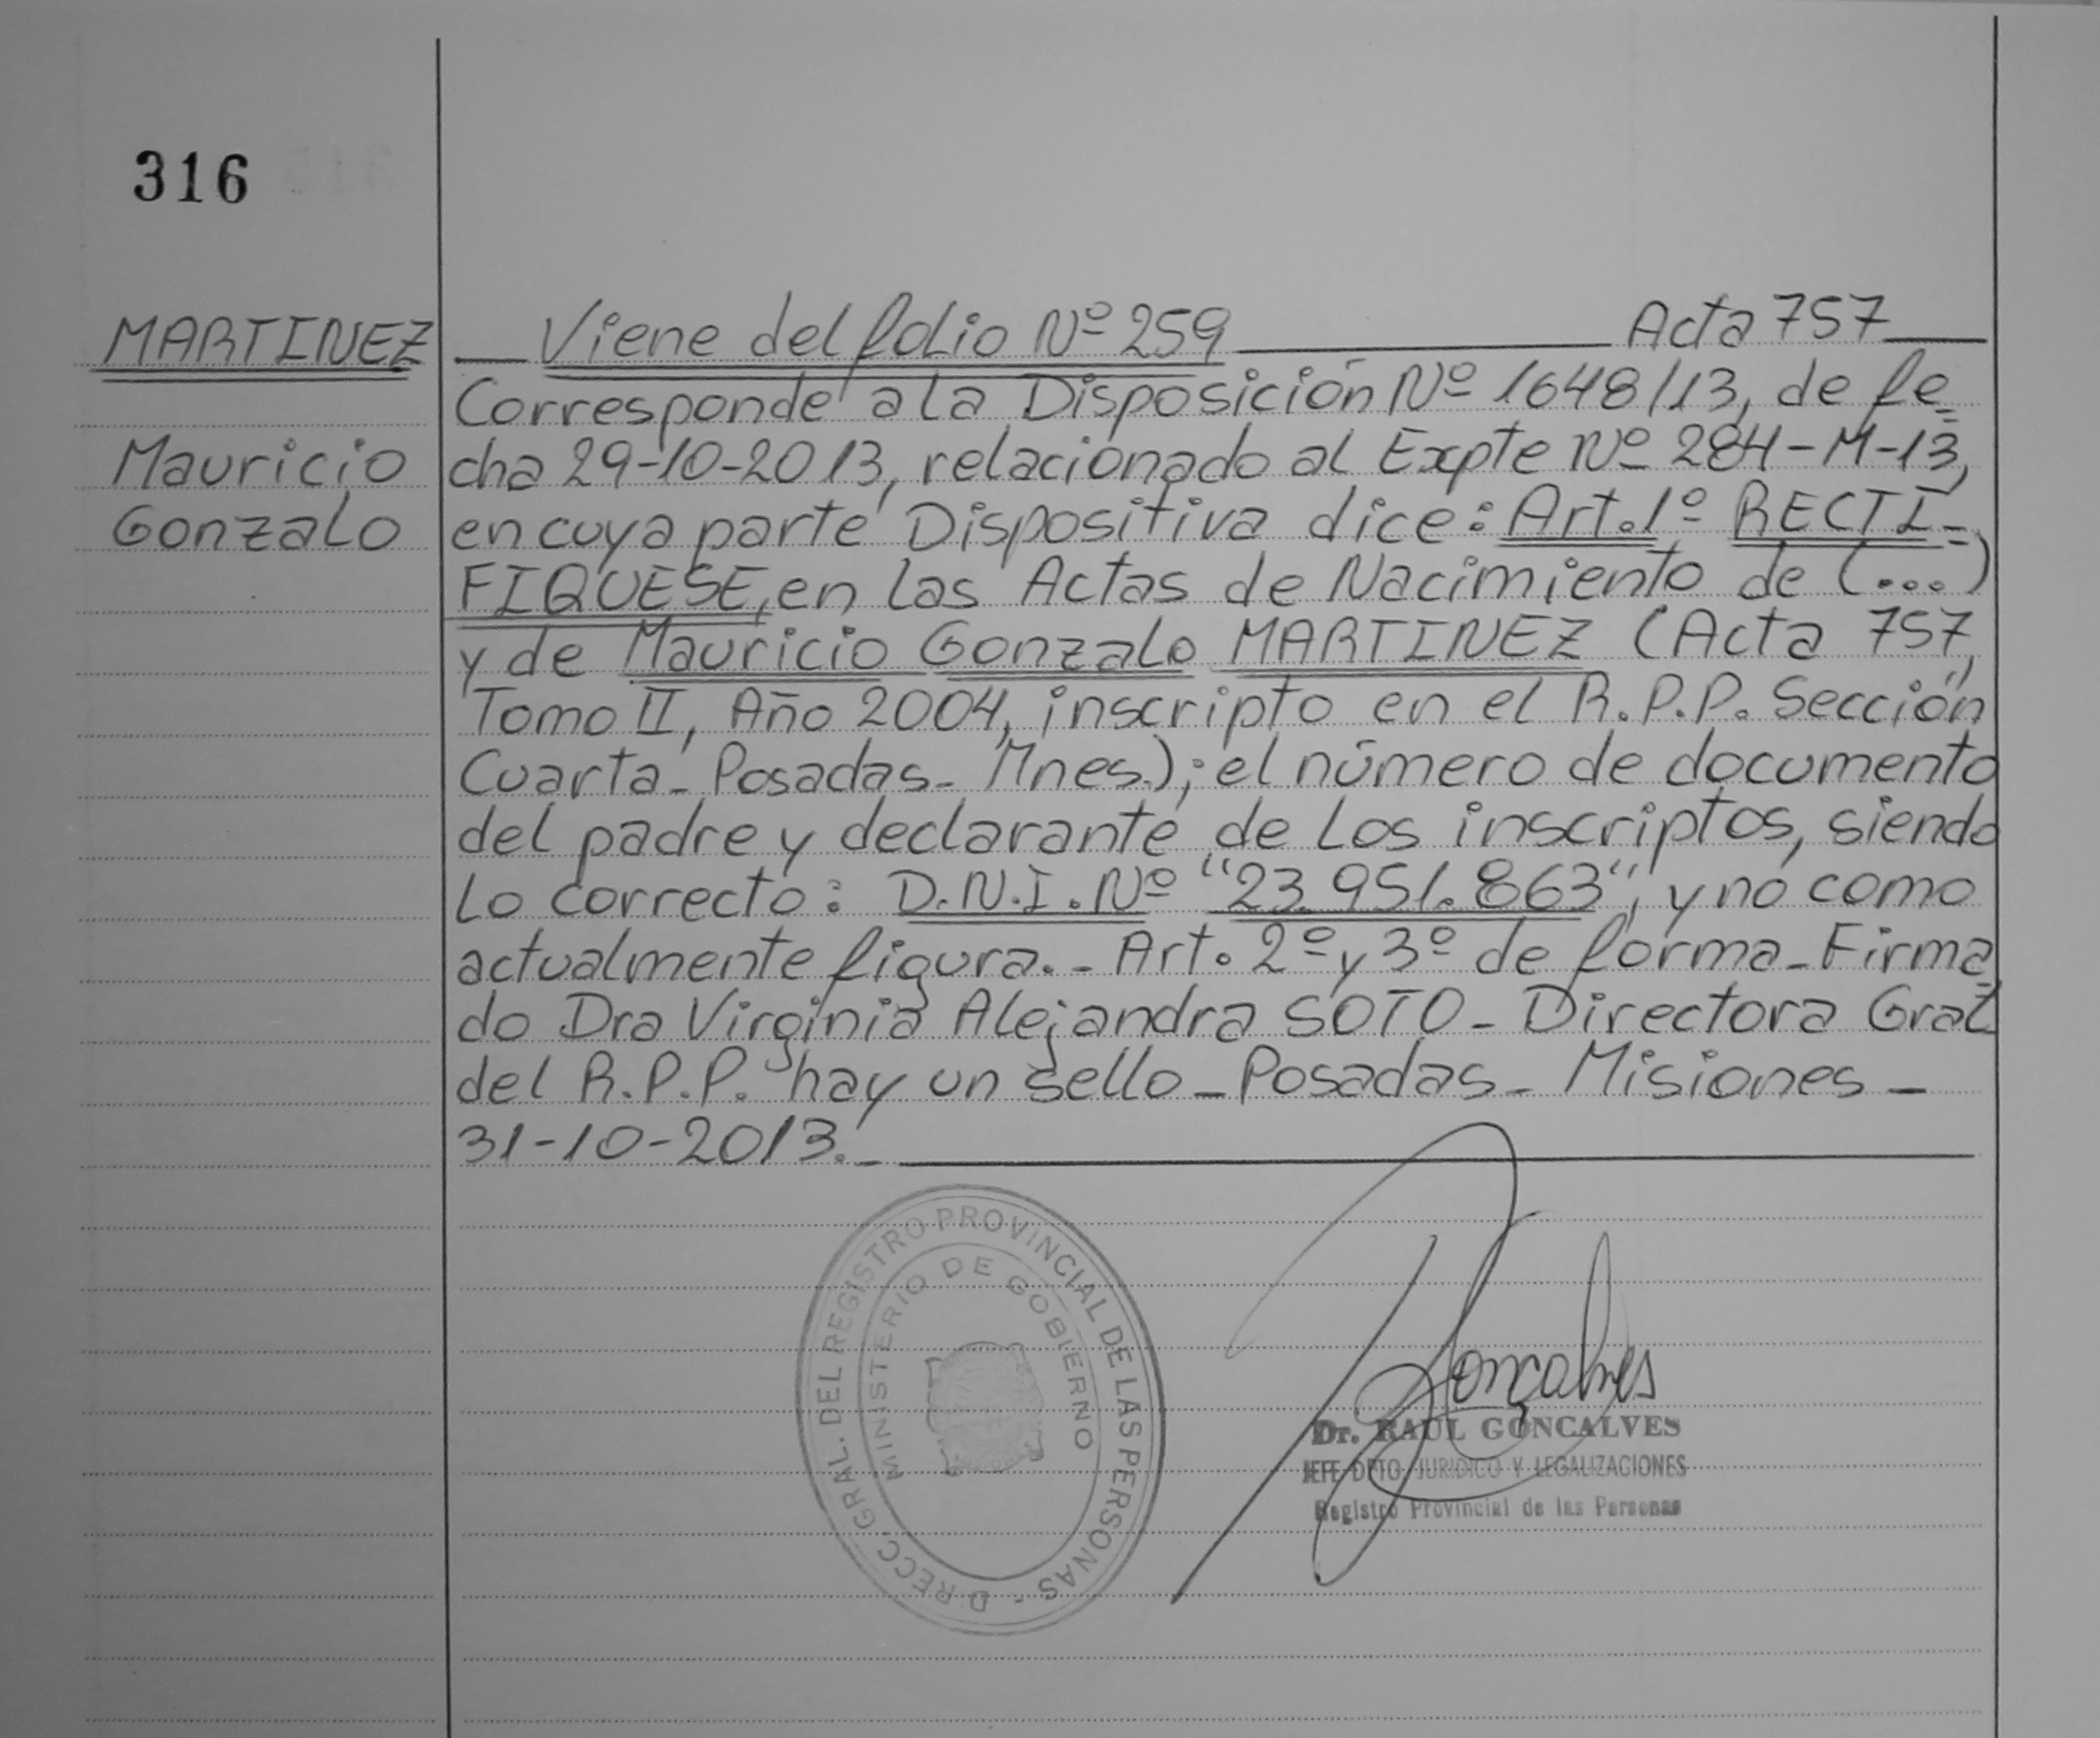 316
MARTINEZ
Mauricio
Gonzalo
Viene del folio Nº 259 Acta 757
Corresponde a la Disposición Nº 1648/13, de fe=
cha 29-10-2013, relacionado al Expte Nº 284-M-13,
en cuya parte Dispositiva dice: Art. 1º RECTI=
FIQUESE, en las Actas de Nacimiento de (...)
y de Mauricio Gonzalo MARTINEZ (Acta 757,
Tomo II, Año 2004, inscripto en el R.P.P. Sección
Cuarta - Posadas - Mnes.); el número de documento
del padre y declarante de los inscriptos, siendo
lo correcto: D.N.I. Nº "23.951.863", y no como
actualmente figura. - Art. 2º y 3º de forma - Firma
do Dra Virginia Alejandra SOTO - Directora Gral
del R.P.P. hay un sello - Posadas - Misiones -
31-10-2013. -
DRECC. GRAL. DEL REGISTRO PROVINCIAL DE LAS PERSONAS -
MINISTERIO DE GOBIERNO
Gonçalves
Dr. RAUL GONCALVES
JEFE DPTO. JURIDICO Y LEGALIZACIONES
Registro Provincial de las Personas